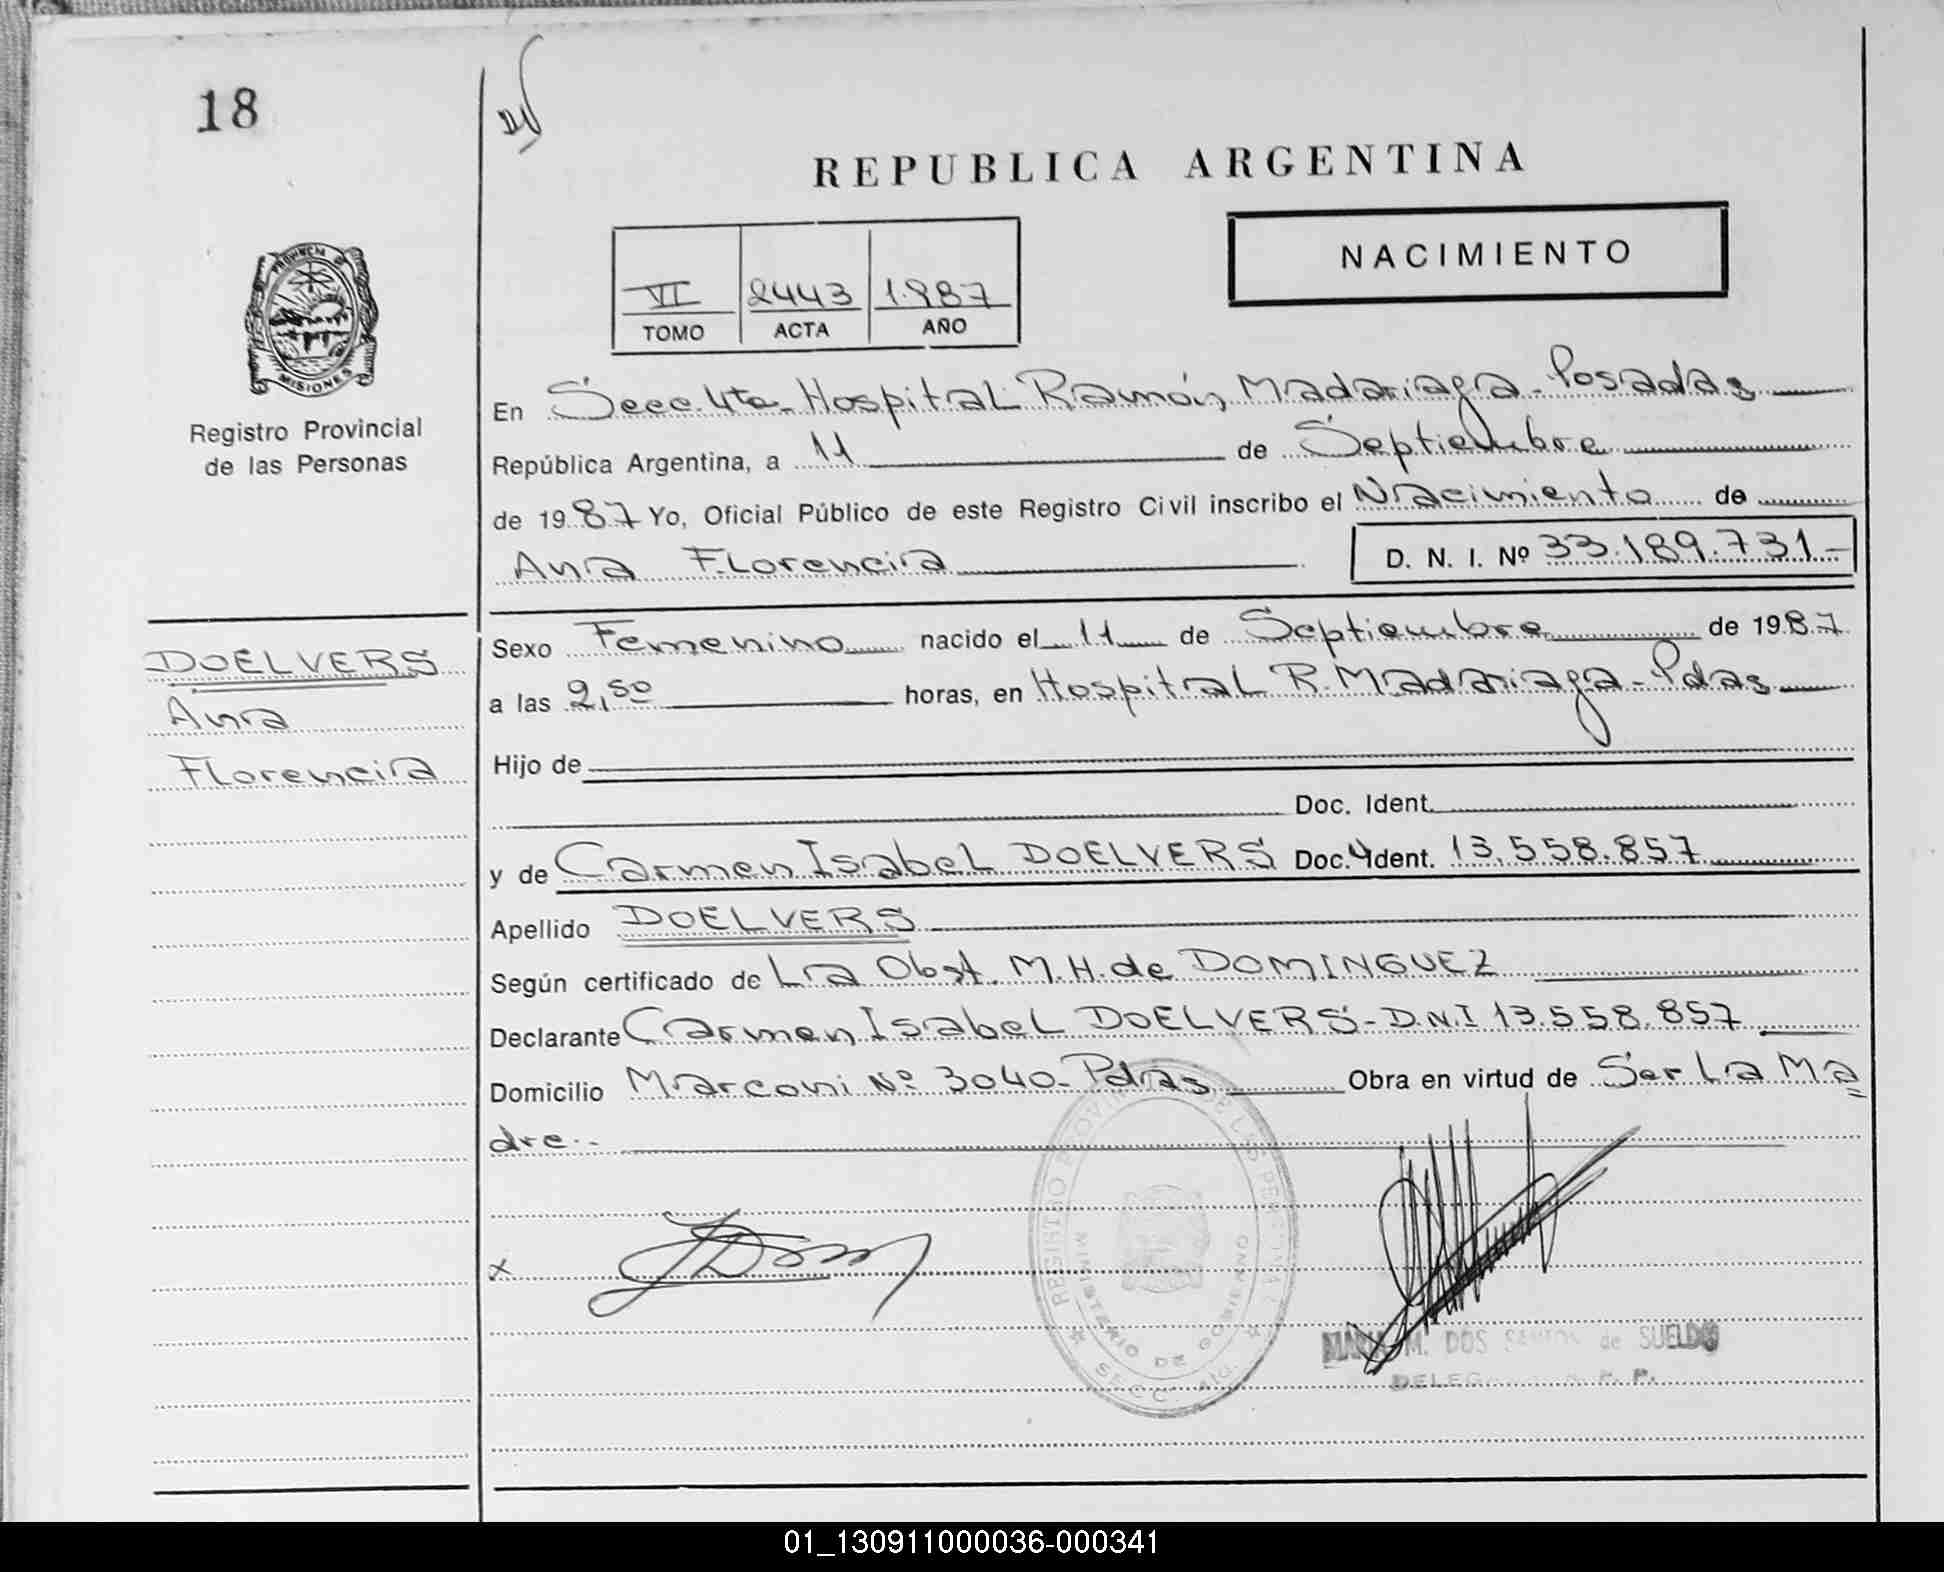 18
REPUBLICA ARGENTINA
NACIMIENTO
VI 2443 1.987
TOMO ACTA AÑO
PROVINCIA DE
MISIONES
Registro Provincial
de las Personas
En Secc. 4ta. Hospital Ramón Madariaga - Posadas
República Argentina, a 11 de Septiembre
de 1987 Yo, Oficial Público de este Registro Civil inscribo el Nacimiento de
Ana Florencia D. N. I. Nº 33.189.731.-
DOELVERS
Ana
Florencia
Sexo Femenino nacido el 11 de Septiembre de 1987
a las 2,50 horas, en Hospital R. Madariaga - Pdas
Hijo de
Doc. Ident.
y de Carmen Isabel DOELVERS Doc. Ident. 13.558.857
Apellido DOELVERS
Según certificado de La Obst. M.H. de DOMINGUEZ
Declarante Carmen Isabel DOELVERS - D.N.I 13.558.857
Domicilio Marconi Nº 3040 - Pdas Obra en virtud de Ser La Ma
dre.-
x
REGISTRO PROVINCIAL DE LAS PERSONAS
MINISTERIO DE GOBIERNO
SECC. 4ta.
M. DOS SANTOS de SUELDO